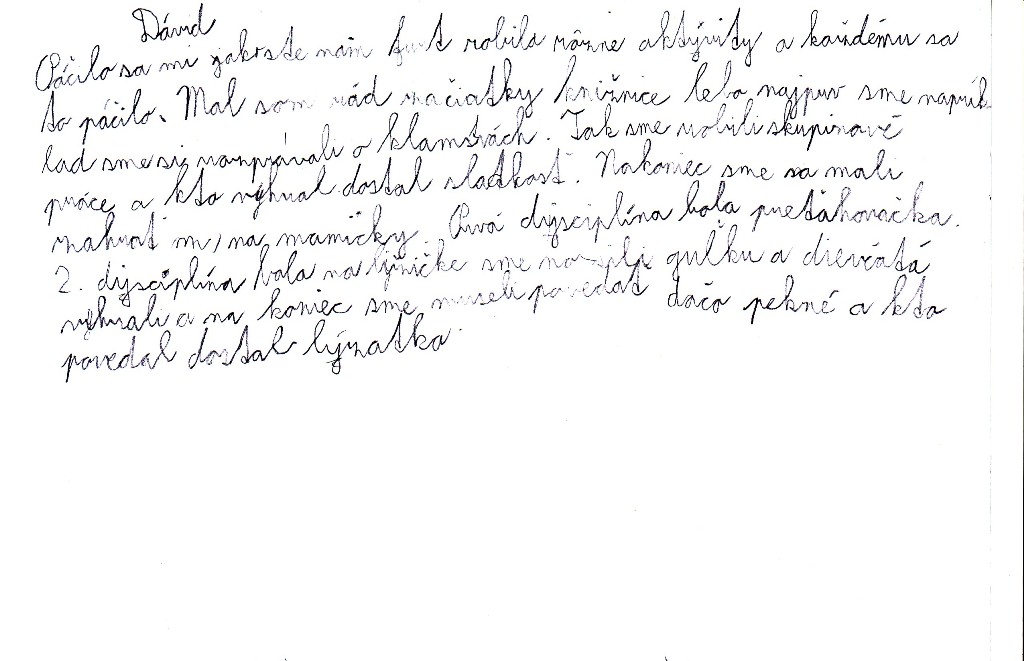 Dávid
Páčilo sa mi jakoste nám furt robila rôzne aktývity a každému sa
to páčilo. Mal som rád začiatky knižnice lebo najpur sme naprík
lad sme si rozprávali o klamstvách. Tak sme robili skupinové
práce a kto výhral dostal sladkosť. Nakoniec sme sa mali
zahrať na mamičky. Prvá dýsciplína bola preťahovačka.
2. dýsciplína bola na lyžičke sme nosili guľku a dievčatá
výhrali a na koniec sme museli povedať dačo pekné a kto
povedal dostal lýzatko